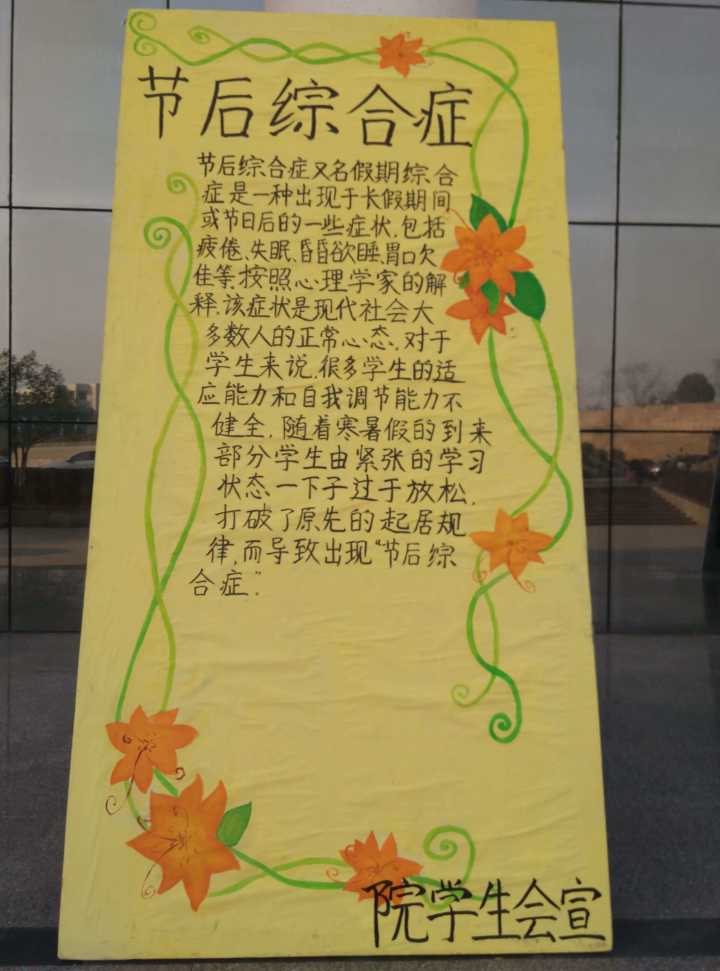 节后综合症
节后综合症又名假期综合
症是一种出现于长假期间
或节日后的一些症状.包括
疲倦、失眠、昏昏欲睡、胃口欠
佳等.按照心理学家的解
释.该症状是现代社会大
多数人的正常心态.对于
学生来说.很多学生的适
应能力和自我调节能力不
健全.随着寒暑假的到来
部分学生由紧张的学习
状态一下子过于放松.
打破了原先的起居规
律.而导致出现“节后综
合症.”
院学生会宣